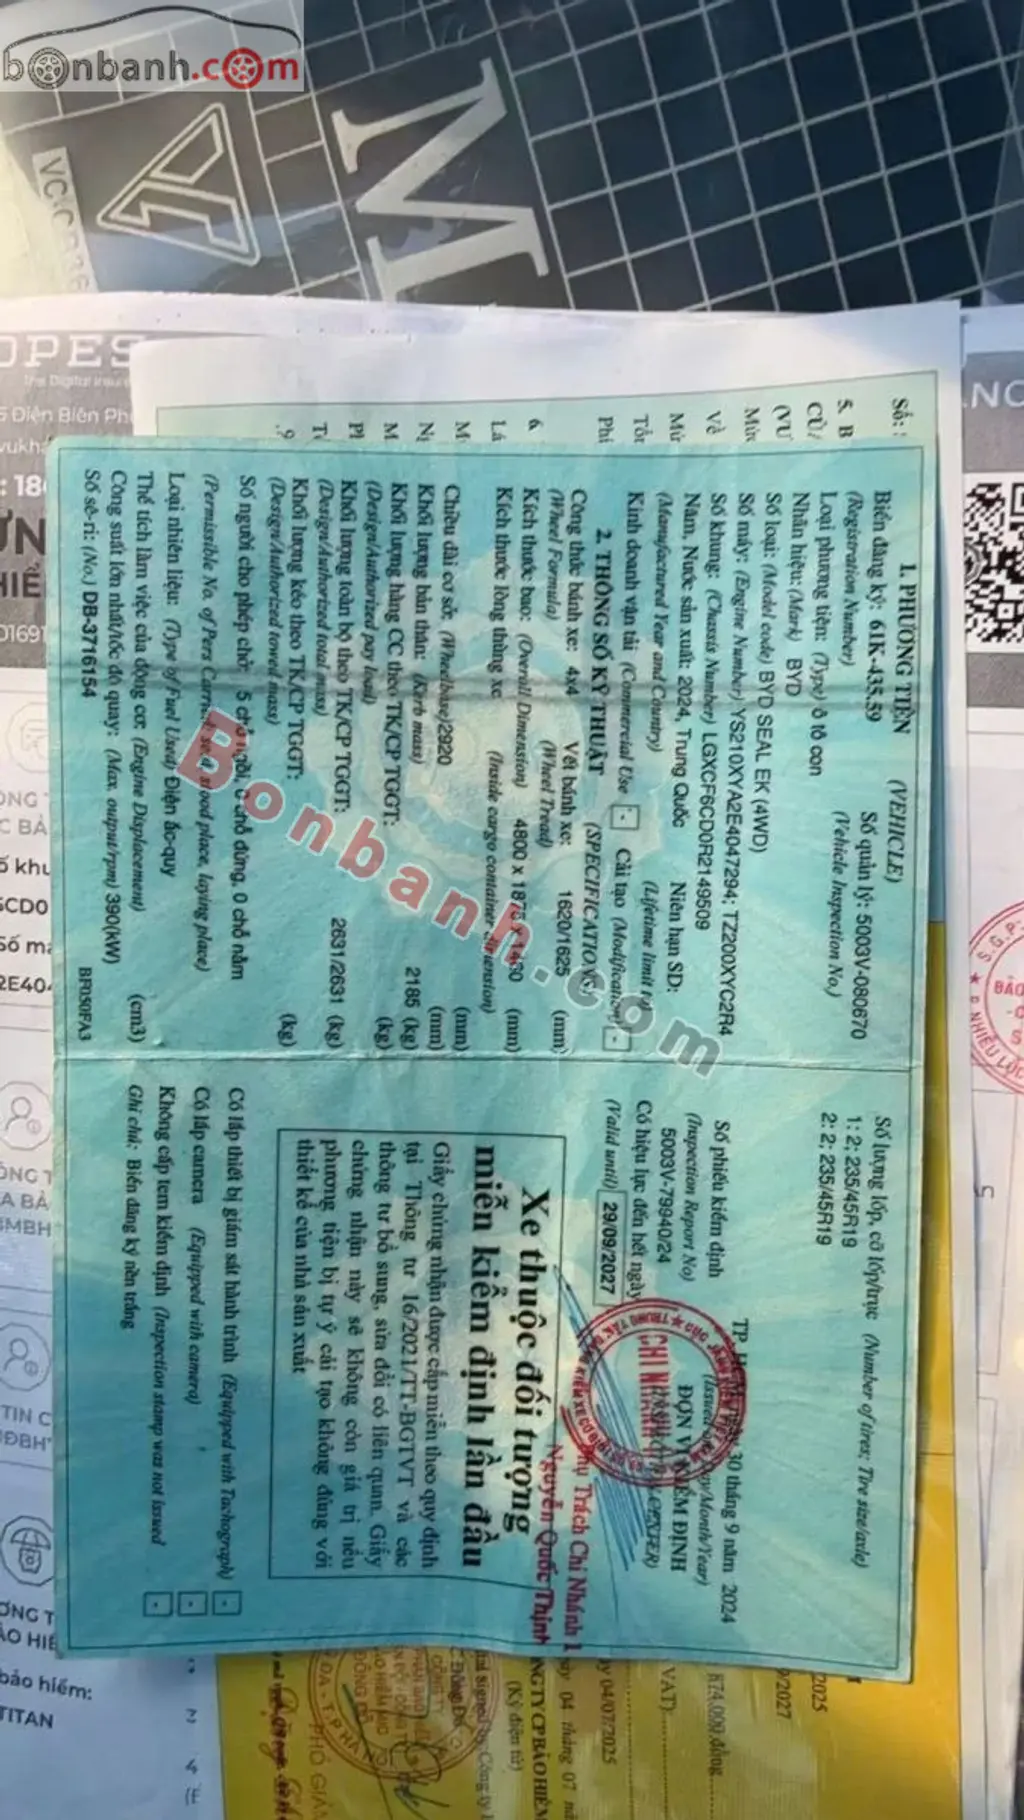 bonbanh.com
M
OPES
1. PHƯƠNG TIỆN (VEHICLE)
Biển đăng ký: 61K-435.59 Số quản lý: 5003V-080670
(Registration Number) (Vehicle Inspection No.)
Loại phương tiện: (Type) ô tô con
Nhãn hiệu: (Mark) BYD
Số loại: (Model code) BYD SEAL EK (4WD)
Số máy: (Engine Number) YS210XYA2E047294; TZ200XYC2R4
Số khung: (Chassis Number) LGXCF6CD0R2149509
Năm, Nước sản xuất: 2024, Trung Quốc Niên hạn SD:
(Manufactured Year and Country) (Lifetime limit to)
Kinh doanh vận tải (Commercial Use) - Cải tạo (Modification) -
2. THÔNG SỐ KỸ THUẬT (SPECIFICATIONS)
Công thức bánh xe: 4x4 Vết bánh xe: 1620/1625 (mm)
(Wheel Formula) (Wheel Tread)
Kích thước bao: (Overall Dimension) 4800 x 1875 x 1460 (mm)
Kích thước lòng thùng xe (Inside cargo container dimension)
(mm)
Chiều dài cơ sở: (Wheelbase) 2920 (mm)
Khối lượng bản thân: (Kerb mass) 2185 (kg)
Khối lượng hàng CC theo TK/CP TGGT: (kg)
(Design/Authorized pay load)
Khối lượng toàn bộ theo TK/CP TGGT: 2631/2631 (kg)
(Design/Authorized total mass)
Khối lượng kéo theo TK/CP TGGT: (kg)
(Design/Authorized towed mass)
Số người cho phép chở: 5 chỗ ngồi, 0 chỗ đứng, 0 chỗ nằm
(Permissible No. of Pers Carried: seat, stood place, laying place)
Loại nhiên liệu: (Type of Fuel Used) Điện ắc-quy
Thể tích làm việc của động cơ: (Engine Displacement) (cm3)
Công suất lớn nhất/tốc độ quay: (Max. output/rpm) 390(kW)
Số sê-ri: (No.) DB-3716154 BF050FA3
Số lượng lốp, cỡ lốp/trục (Number of tires; Tire size/axle)
1: 2; 235/45R19
2: 2; 235/45R19
Số phiếu kiểm định
(Inspection Report No)
5003V-79940/24
Có hiệu lực đến hết ngày
(Valid until) 29/09/2027
30 tháng 9 năm 2024
ĐƠN VỊ KIỂM ĐỊNH
CHI NHÁNH
Phụ Trách Chi Nhánh 1
Nguyễn Quốc Thịnh
Xe thuộc đối tượng
miễn kiểm định lần đầu
Giấy chứng nhận được cấp miễn theo quy định
tại Thông tư 16/2021/TT-BGTVT và các
thông tư bổ sung, sửa đổi có liên quan. Giấy
chứng nhận này sẽ không còn giá trị nếu
phương tiện bị tự ý cải tạo không đúng với
thiết kế của nhà sản xuất
Có lắp thiết bị giám sát hành trình (Equipped with Tachograph) -
Có lắp camera (Equipped with camera) -
Không cấp tem kiểm định (Inspection stamp was not issued) -
Ghi chú: Biển đăng ký nền trắng
Bonbanh.com
bảo hiểm:
TITAN